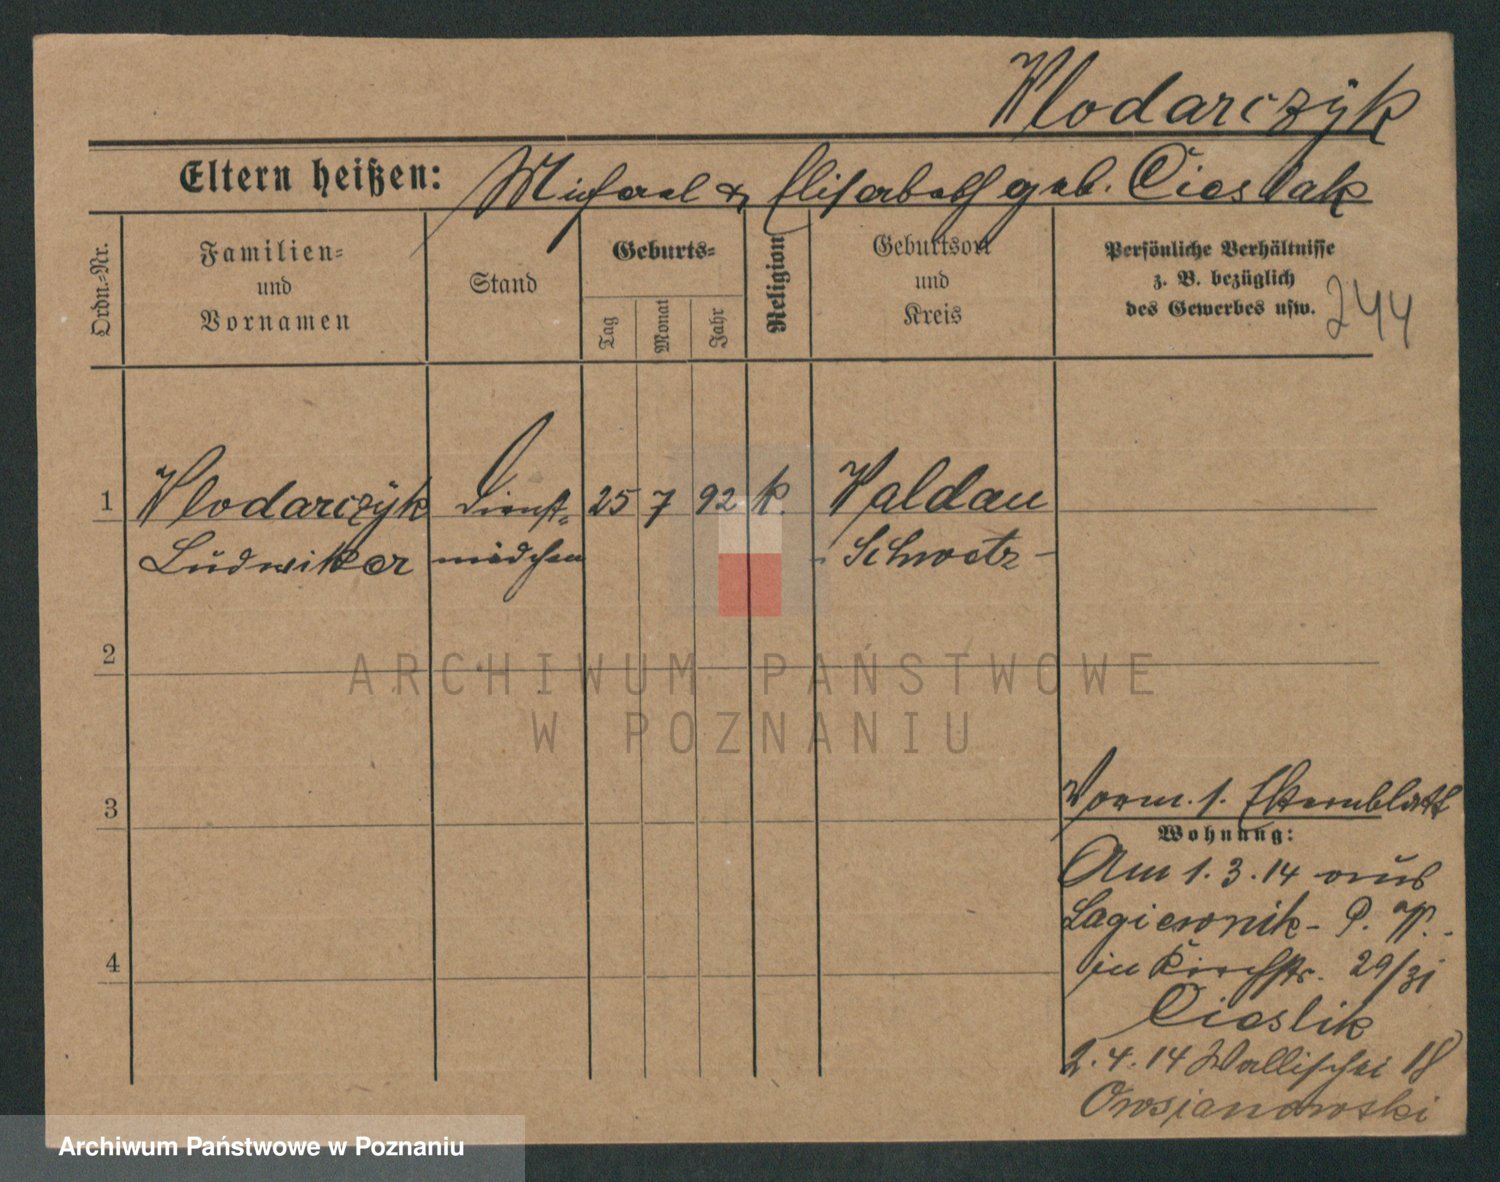 Wlodarczÿk
Eltern heißen: Michael & Elisabeth geb. Cieslak
Ordn.=Nr.
Familien=
und
Vornamen
Stand
Geburts=
Tag
Monat
Jahr
Religion
Geburtsort
und
Kreis
Persönliche Verhältnisse
z. B. bezüglich
des Gewerbes usw.
244
1 Wlodarczÿk Dienst= 25 7 92 k. Waldau
Ludwika mädchen - Schwetz -
2
3
4
Vorm. s. Elternblatt
Wohnung:
Am 1.3.14 aus
Lagiewnik - P.
in Kirchstr. 29/31
Cieslik
2.4.14 Wallischei 18
Owsianowski
ARCHIWUM PAŃSTWOWE
W POZNANIU
Archiwum Państwowe w Poznaniu